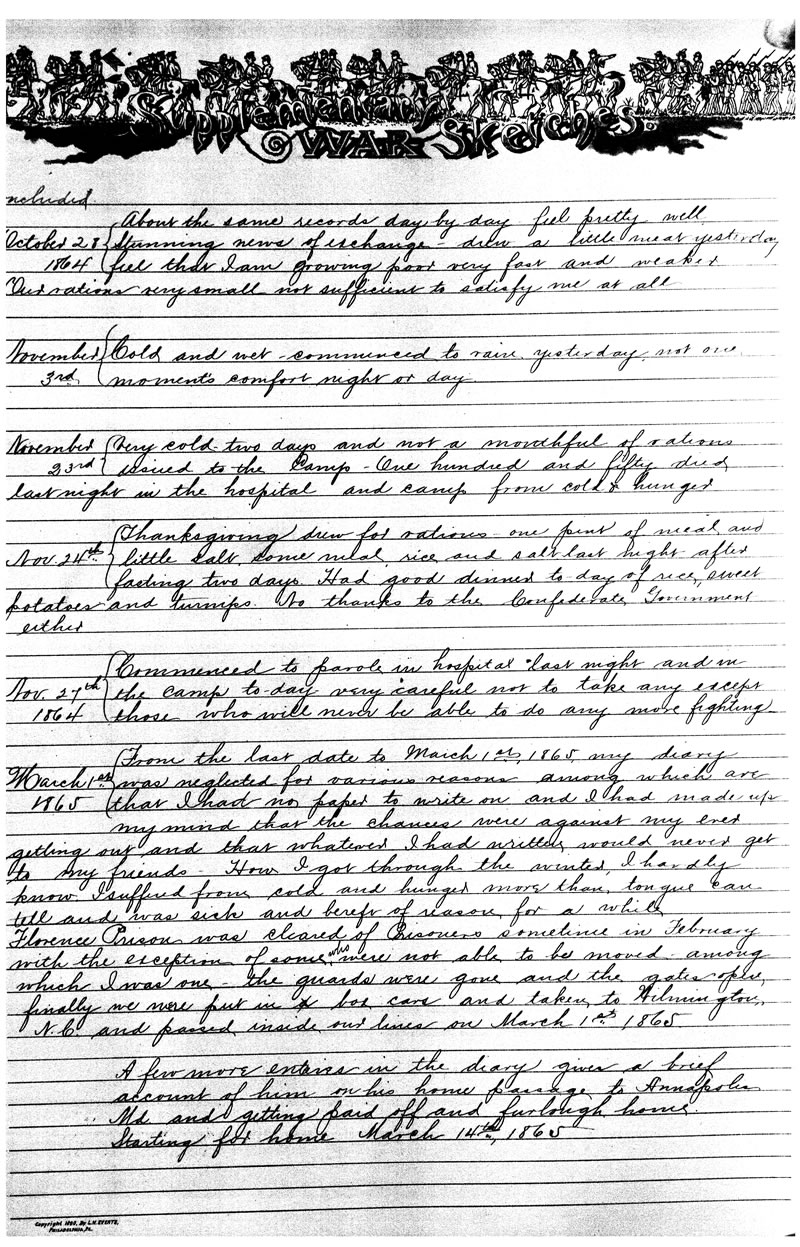 Supplementary
WAR Sketches.
ncluded
About the same records day by day feel pretty well
October 28 Stunning news of exchange - drew a little meat yesterday
1864 feel that I am growing poor very fast and weaker
Our rations very small not sufficient to satisfy me at all
November Cold and wet - commenced to rain yesterday, not one
3rd moment's comfort night or day
November Very cold two days and not a mouthful of rations
23rd issued to the Camp - One hundred and fifty died
last night in the hospital and camp from cold & hunger
Thanksgiving drew for rations one pint of meal and
Nov. 24th little salt, some meal, rice and salt last night after
fasting two days. Had good dinner to day of rice, sweet
potatoes and turnips. No thanks to the Confederate Government
either
Commenced to parole in hospital last night and in
Nov. 27th the camp to-day very careful not to take any except
1864 those who will never be able to do any more fighting
From the last date to March 1st, 1865, my diary
March 1st was neglected for various reasons among which are
1865 that I had no paper to write on and I had made up
my mind that the chances were against my ever
getting out and that whatever I had written would never get
to my friends - How I got through the winter, I hardly
know. I suffered from cold and hunger more than tongue can
tell and was sick and bereft of reason for a while
Florence Prison was cleared of Prisoners sometime in February
with the exception of some who were not able to be moved among
which I was one - the guards were gone and the gates open,
finally we were put in box cars and taken to Wilmington,
N.C. and passed inside our lines on March 1st 1865
A few more entries in the diary gives a brief
account of him on his home passage to Annapolis
Md and getting paid off and furlough home.
Starting for home March 14th, 1865
Copyright 1895, By L.H. EVERTS,
PHILADELPHIA, PA.